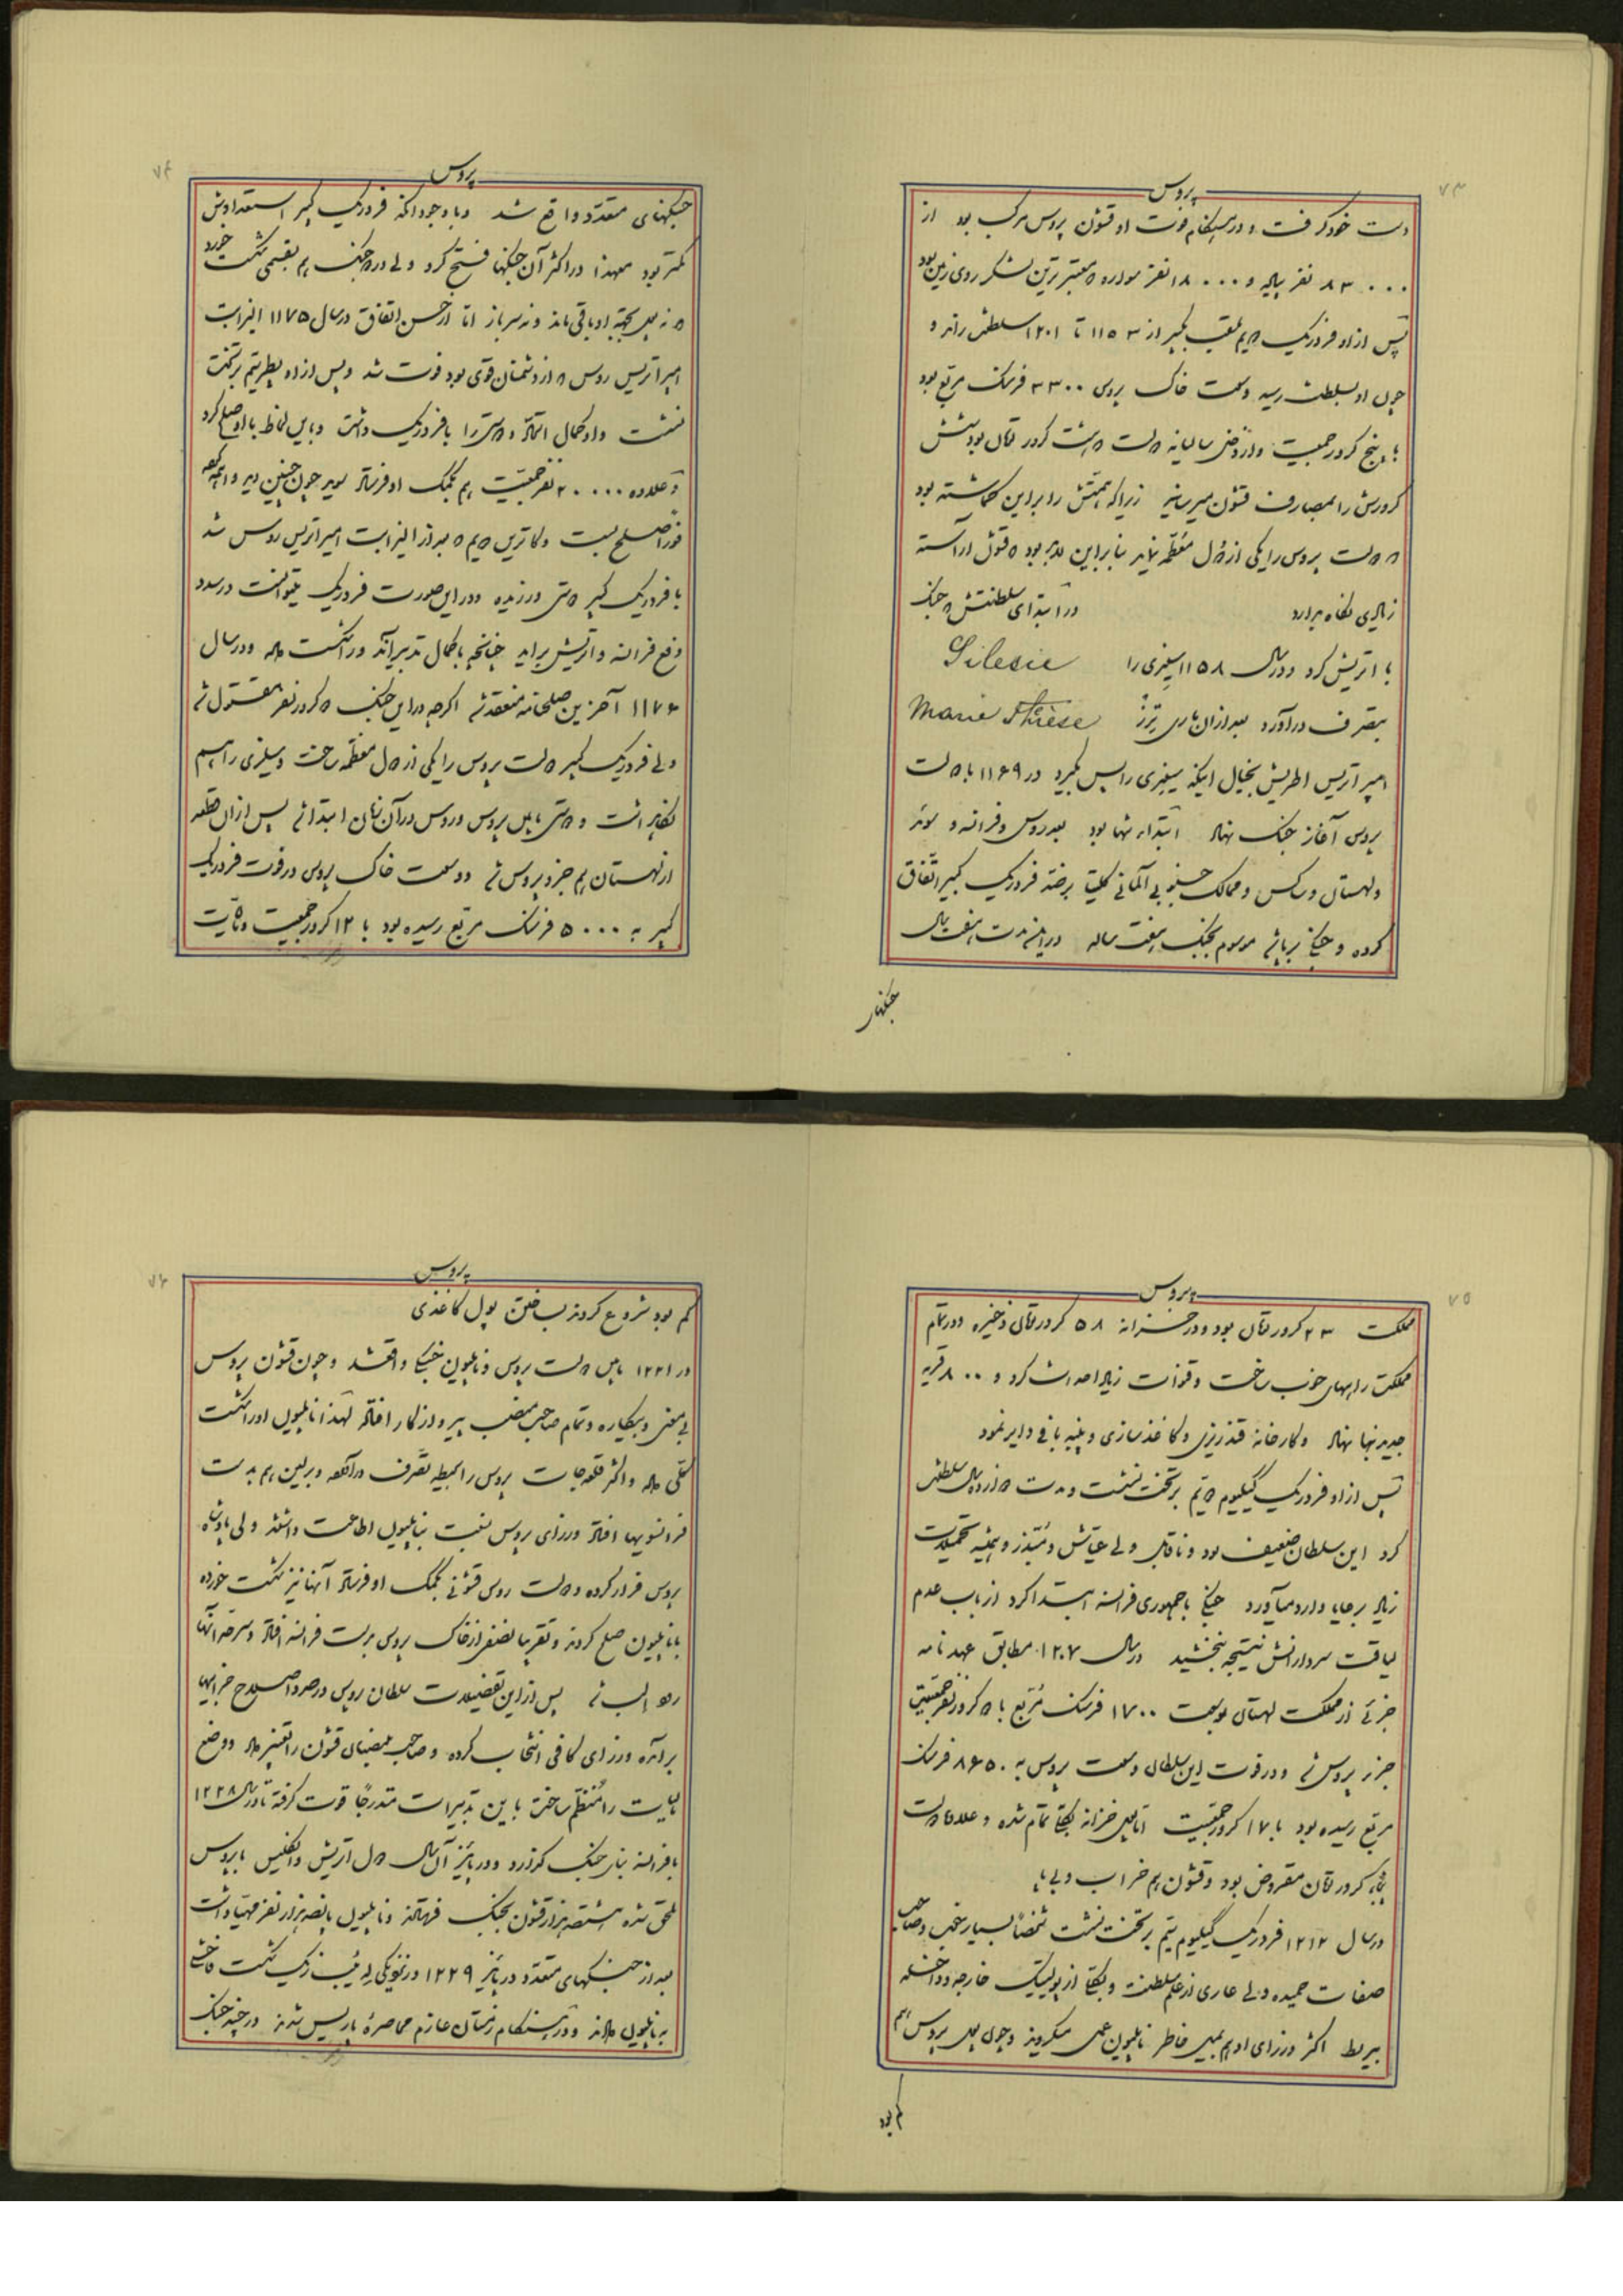 ۷۳
پروس
دست خود گرفت و در هنگام فوت او قشون پروس مرکب بود از
۸۳۰۰۰ نفر پیاده و ۱۸۰۰۰ نفر سواره که معتبرترین لشکر روی زمین بود
پس از او فردریک دویم ملقب بکبیر از ۱۱۵۳ تا ۱۲۰۱ سلطنت راند و
چون او بسلطنت رسید وسعت خاک پروس ۳۳۰۰ فرسنک مربع بود
با پنج کرور جمعیت و از وضی سالیانه دولت هشت کرور تومان بود شش
کرورش را بمصارف قشون میرسانید زیرا که همتش را بر این گماشته بود
که دولت پروس را یکی از دول معظمه نماید بنابر این لابد بود که قشون آراسته
زیادی نگاه بدارد در ابتدای سلطنتش جنک
با اتریش کرد و در سال ۱۱۵۸ سیلزی را Silesie
بتصرف در آورد بعد از آن ماری ترز Marie Thèrèse
امپراتریس اطریش بخیال اینکه سیلزی را پس بگیرد در ۱۱۶۹ با دولت
پروس آغاز جنک نهاد ابتدا تنها بود بعد روس و فرانسه و سوئد
و لهستان و ساکس و ممالک جنوبی آلمانی کلیتا بر ضد فردریک کبیر اتفاق
کرده و جنگی برپا شد موسوم بجنک هفت ساله در این مدت هفت سال
جنگهای
۷۴
پروس
جنگهای متعدد واقع شد و با وجود آنکه فردریک کبیر استعدادش
کمتر بود معهذا در اکثر آن جنگها فتح کرد ولی در دو جنک هم بقسمی شکست خورد
که نه پول بجهة او باقی ماند و نه سرباز اما از حسن اتفاق در سال ۱۱۷۵ الیزابت
امپراتریس روس که از دشمنان قوی بود فوت شد و پس از او پطر سیم بر تخت
نشست و او کمال اتحاد و دوستی را با فردریک داشت و باین لحاظ با او صلح کرد
و علاوه ۲۰۰۰۰ نفر جمعیت هم بکمک او فرستاد سوید چون چنین دید واهمه کرده
فورا صلح بست و کاترین دویم که بعد از الیزابت امپراتریس روس شد
با فردریک کبیر دوستی ورزیده و در این صورت فردریک میتوانست در صدد
دفع فرانسه و اتریش براید چنانچه با کمال تدبیر آنها را شکست داد و در سال
۱۱۷۶ آخرین صلحنامه منعقد شد اگرچه در این جنک دو کرور نفر مقتول شد
ولی فردریک کبیر دولت پروس را یکی از دول معظمه ساخت و سیلزی را هم
نگاهداشت و دوستی مابین پروس و روس در آن زمان ابتدا شد پس از آن قطعه
از لهستان هم جزو پروس شد و وسعت خاک پروس در فوت فردریک
کبیر به ۵۰۰۰ فرسنک مربع رسیده بود با ۱۲ کرور جمعیت و مالیات
۷۵
پروس
مملکت ۲۳ کرور تومان بود و در خزانه ۵۸ کرور تومان ذخیره و در تمام
مملکت راههای خوب ساخت و قنوات زیاد احداث کرد و ۸۰۰ قریه
جدید بنا نهاد و کارخانه قندریزی و کاغذسازی و پنبه بافی دایر نمود
پس از او فردریک گیلیوم دویم بر تخت نشست و مدت دوازده سال سلطنت
کرد این سلطان ضعیف بود و ناقابل ولی عیاش و مبذر و همیشه تحمیلات
زیاد بر رعایا وارد میآورد جنگی با جمهوری فرانسه ابتدا کرد از باب عدم
لیاقت سردارانش نتیجه نبخشید در سال ۱۲۰۷ مطابق عهدنامه
جزئی از مملکت لهستان بوسعت ۱۷۰۰ فرسنک مربع با دو کرور نفر جمعیت
جزو پروس شد و در فوت این سلطان وسعت پروس به ۸۶۵۰ فرسنک
مربع رسیده بود با ۱۷ کرور جمعیت اما پول خزانه بکلی تمام شده و علاوه دولت
پنجاه کرور تومان مقروض بود و قشون هم خراب و بی پا
در سال ۱۲۱۲ فردریک گیلیوم سیم بر تخت نشست شخصا بسیار نجیب و صاحب
صفات حمیده ولی عاری از علم سلطنت و بکلی از پولیتیک خارجه و داخله
بیربط اکثر وزرای او هم بمیل خاطر ناپلیون عمل میکردند و چون پول پروس هم
کم بود
۷۶
پروس
کم بود شروع کردند بساختن پول کاغذی
در ۱۲۲۱ مابین دولت پروس و ناپلیون جنگی واقع شد و چون قشون پروس
بی معنی و بیکاره و تمام صاحب منصب پیر و از کار افتاده لهذا ناپلیون او را شکست
کلی داد و اکثر قلعه جات پروس را بحیطه تصرف درآورد و برلین هم بدست
فرانسویها افتاد وزرای پروس نسبت بناپلیون اطاعت داشتند ولی پادشاه
پروس فرار کرده و دولت روس قشونی بکمک او فرستاد آنها نیز شکست خورده
با ناپلیون صلح کردند و تقریبا نصفی از خاک پروس بدست فرانسه افتاد و سرحد آنها
رود الب شد پس از این تفضیلات سلطان پروس در صدد اصلاح خرابیها
برآمده وزرای کافی انتخاب کرده و صاحب منصبان قشون را تغییر داد و وضع
مالیات را منظم ساخت باین تدبیرات متدرجا قوت گرفته تا در سال ۱۲۲۸
با فرانسه بنای جنک گذارد و در پائیز آن سال دول اتریش و انگلیس با پروس
ملحق شده هشتصد هزار قشون بجنک فرستادند و ناپلیون پانصد هزار نفر مهیا داشت
بعد از جنگهای متعدد در پائیز ۱۲۲۹ در نزدیکی لیپزیک شکست فاحشی
به ناپلیون دادند و در هنگام زمستان عازم محاصره پاریس شدند در چند جنک